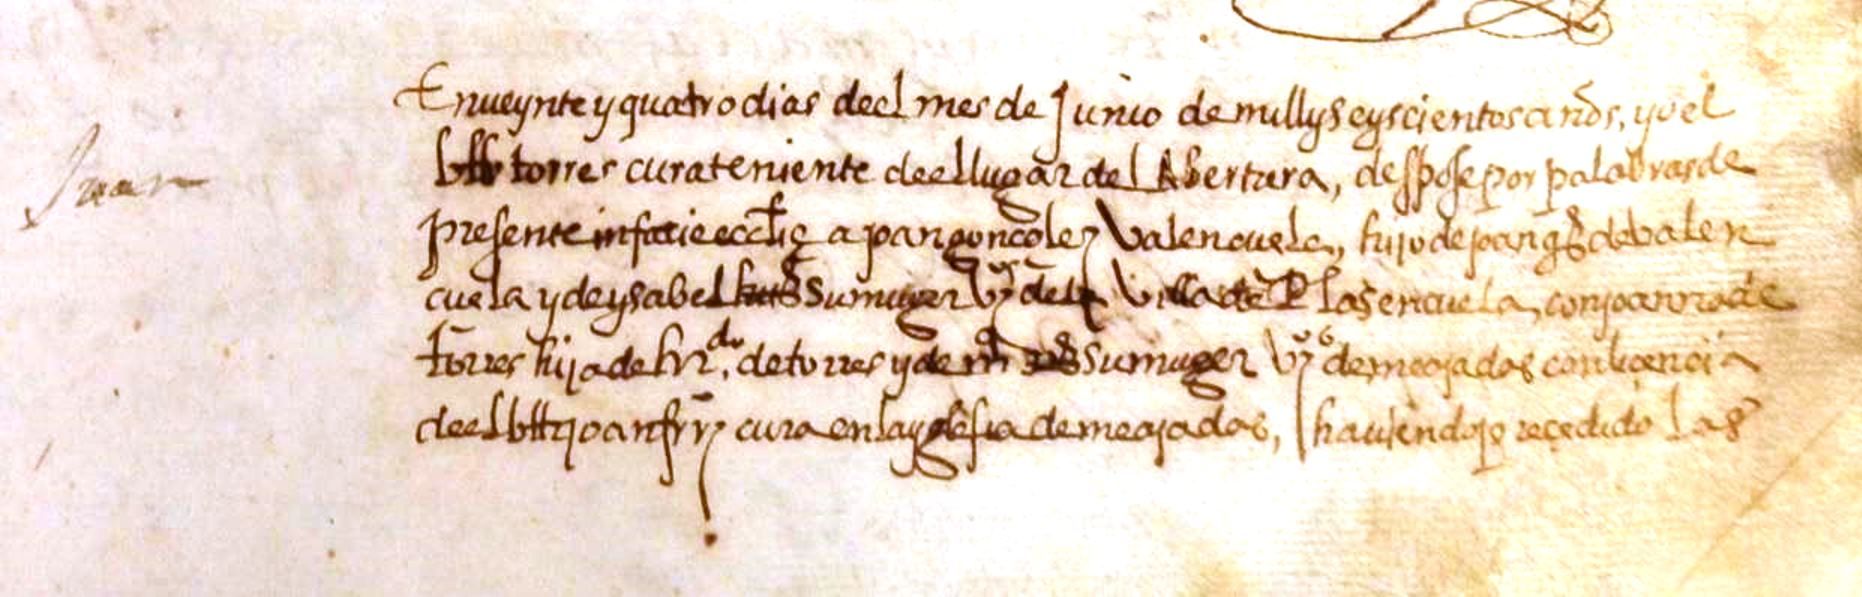 Juan
En veynte y quatro dias deel mes de Junio de mill y seyscientos años, yo el
bllr torres cura teniente deel lugar del Abertura, despose por palabras de
presente in facie ecclie a joan gonçalez Valençuela, hijo de joan gs de balen
cuela y de ysabel su muger vos de la Villa de Plasençuela, con joanna de
torres hija de hrdo, de torres y de su muger vos de meajadas con licencia
deel bllr joan cura en la yglesia de meajadas, haviendo preçedido las